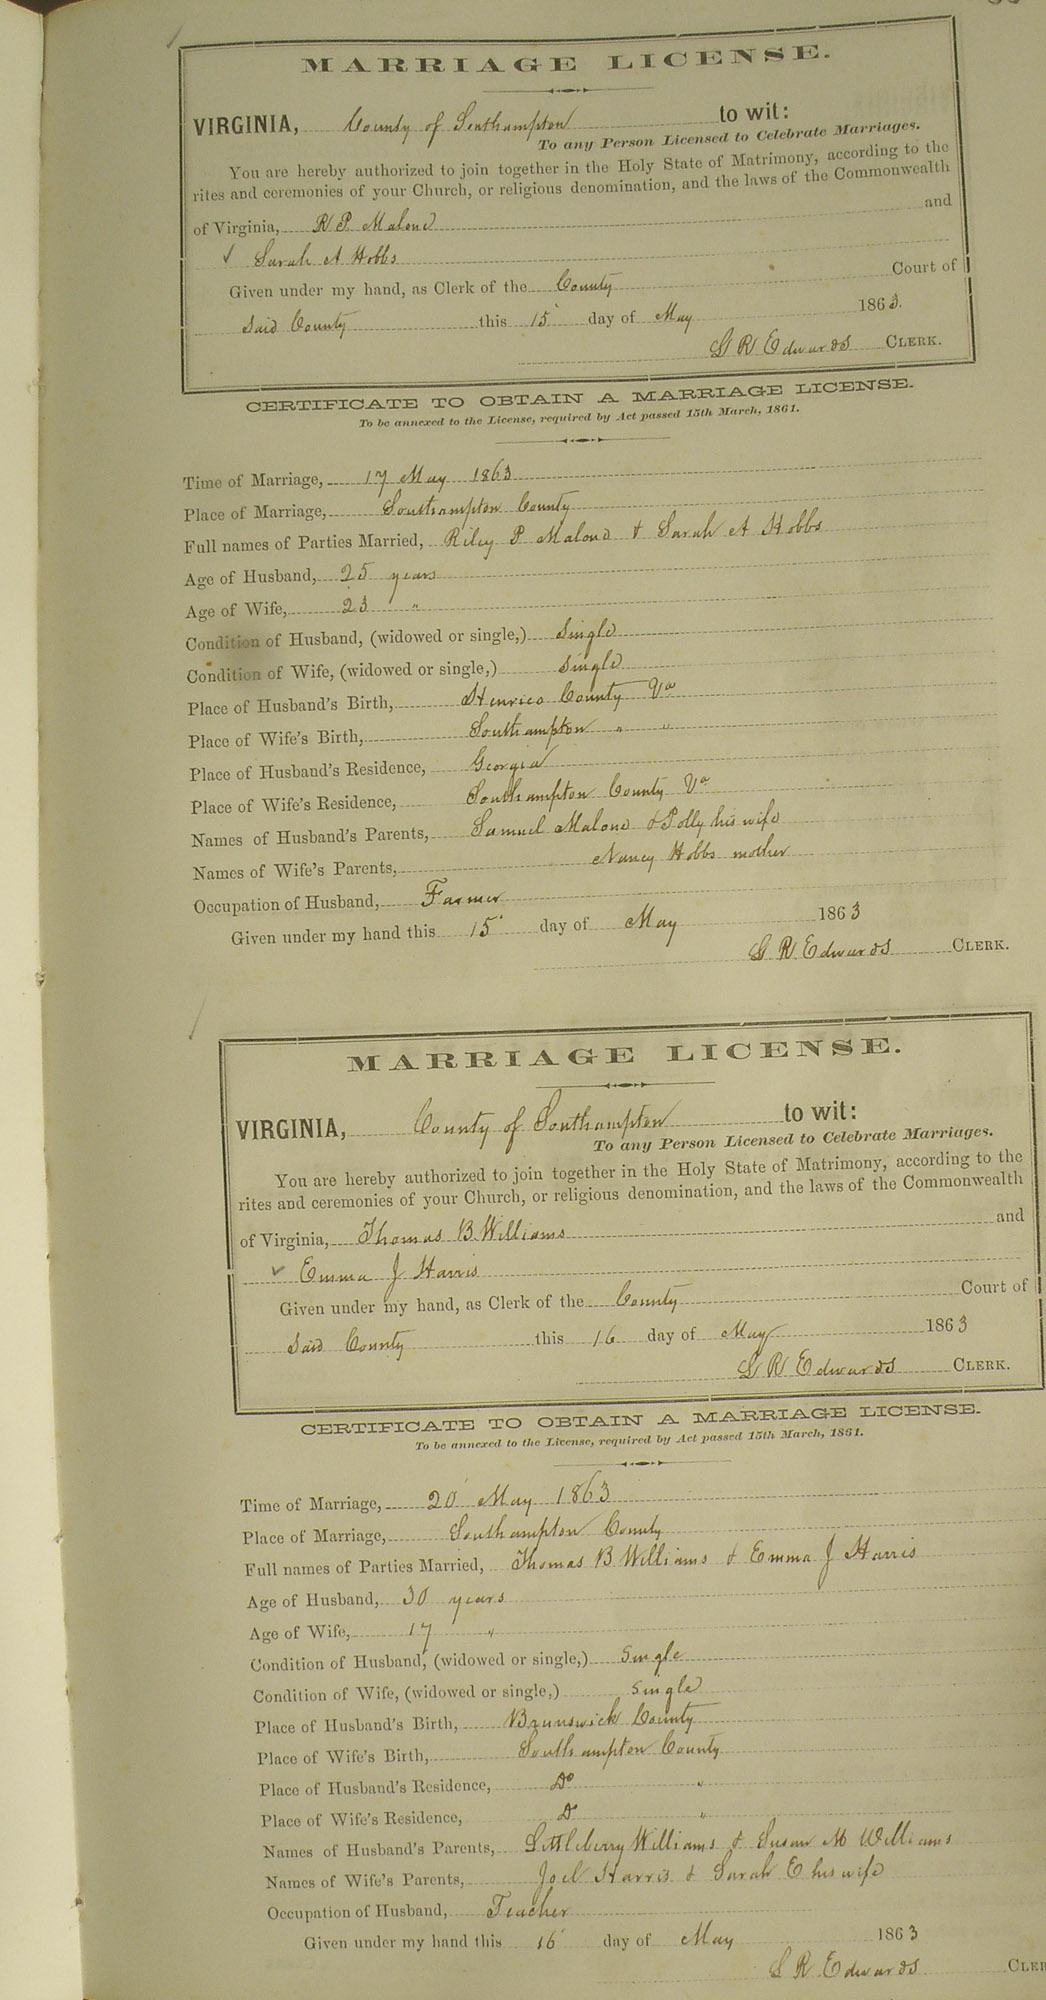 MARRIAGE LICENSE.
VIRGINIA, County of Southampton to wit:
To any Person Licensed to Celebrate Marriages.
You are hereby authorized to join together in the Holy State of Matrimony, according to the
rites and ceremonies of your Church, or religious denomination, and the laws of the Commonwealth
of Virginia, R P Malone and
✓ Sarah A Hobbs
Given under my hand, as Clerk of the County Court of
Said County this 15 day of May 1863.
L R Edwards CLERK.
CERTIFICATE TO OBTAIN A MARRIAGE LICENSE.
To be annexed to the License, required by Act passed 15th March, 1861.
Time of Marriage, 17 May 1863
Place of Marriage, Southampton County
Full names of Parties Married, Riley P Malone & Sarah A Hobbs
Age of Husband, 25 years
Age of Wife, 23 "
Condition of Husband, (widowed or single,) Single
Condition of Wife, (widowed or single,) Single
Place of Husband's Birth, Henrico County Va
Place of Wife's Birth, Southampton " "
Place of Husband's Residence, Georgia
Place of Wife's Residence, Southampton County Va
Names of Husband's Parents, Samuel Malone & Polly his wife
Names of Wife's Parents, Nancy Hobbs mother
Occupation of Husband, Farmer
Given under my hand this 15 day of May 1863
L R Edwards CLERK.
MARRIAGE LICENSE.
VIRGINIA, County of Southampton to wit:
To any Person Licensed to Celebrate Marriages.
You are hereby authorized to join together in the Holy State of Matrimony, according to the
rites and ceremonies of your Church, or religious denomination, and the laws of the Commonwealth
of Virginia, Thomas B Williams and
✓ Emma J Harris
Given under my hand, as Clerk of the County Court of
Said County this 16 day of May 1863
L R Edwards CLERK.
CERTIFICATE TO OBTAIN A MARRIAGE LICENSE.
To be annexed to the License, required by Act passed 15th March, 1861.
Time of Marriage, 20 May 1863
Place of Marriage, Southampton County
Full names of Parties Married, Thomas B Williams & Emma J Harris
Age of Husband, 30 years
Age of Wife, 17 "
Condition of Husband, (widowed or single,) Single
Condition of Wife, (widowed or single,) Single
Place of Husband's Birth, Brunswick County
Place of Wife's Birth, Southampton County
Place of Husband's Residence, Do "
Place of Wife's Residence, Do "
Names of Husband's Parents, Littleberry Williams & Susan M Williams
Names of Wife's Parents, Joel Harris & Sarah E his wife
Occupation of Husband, Teacher
Given under my hand this 16 day of May 1863
L R Edwards CLER